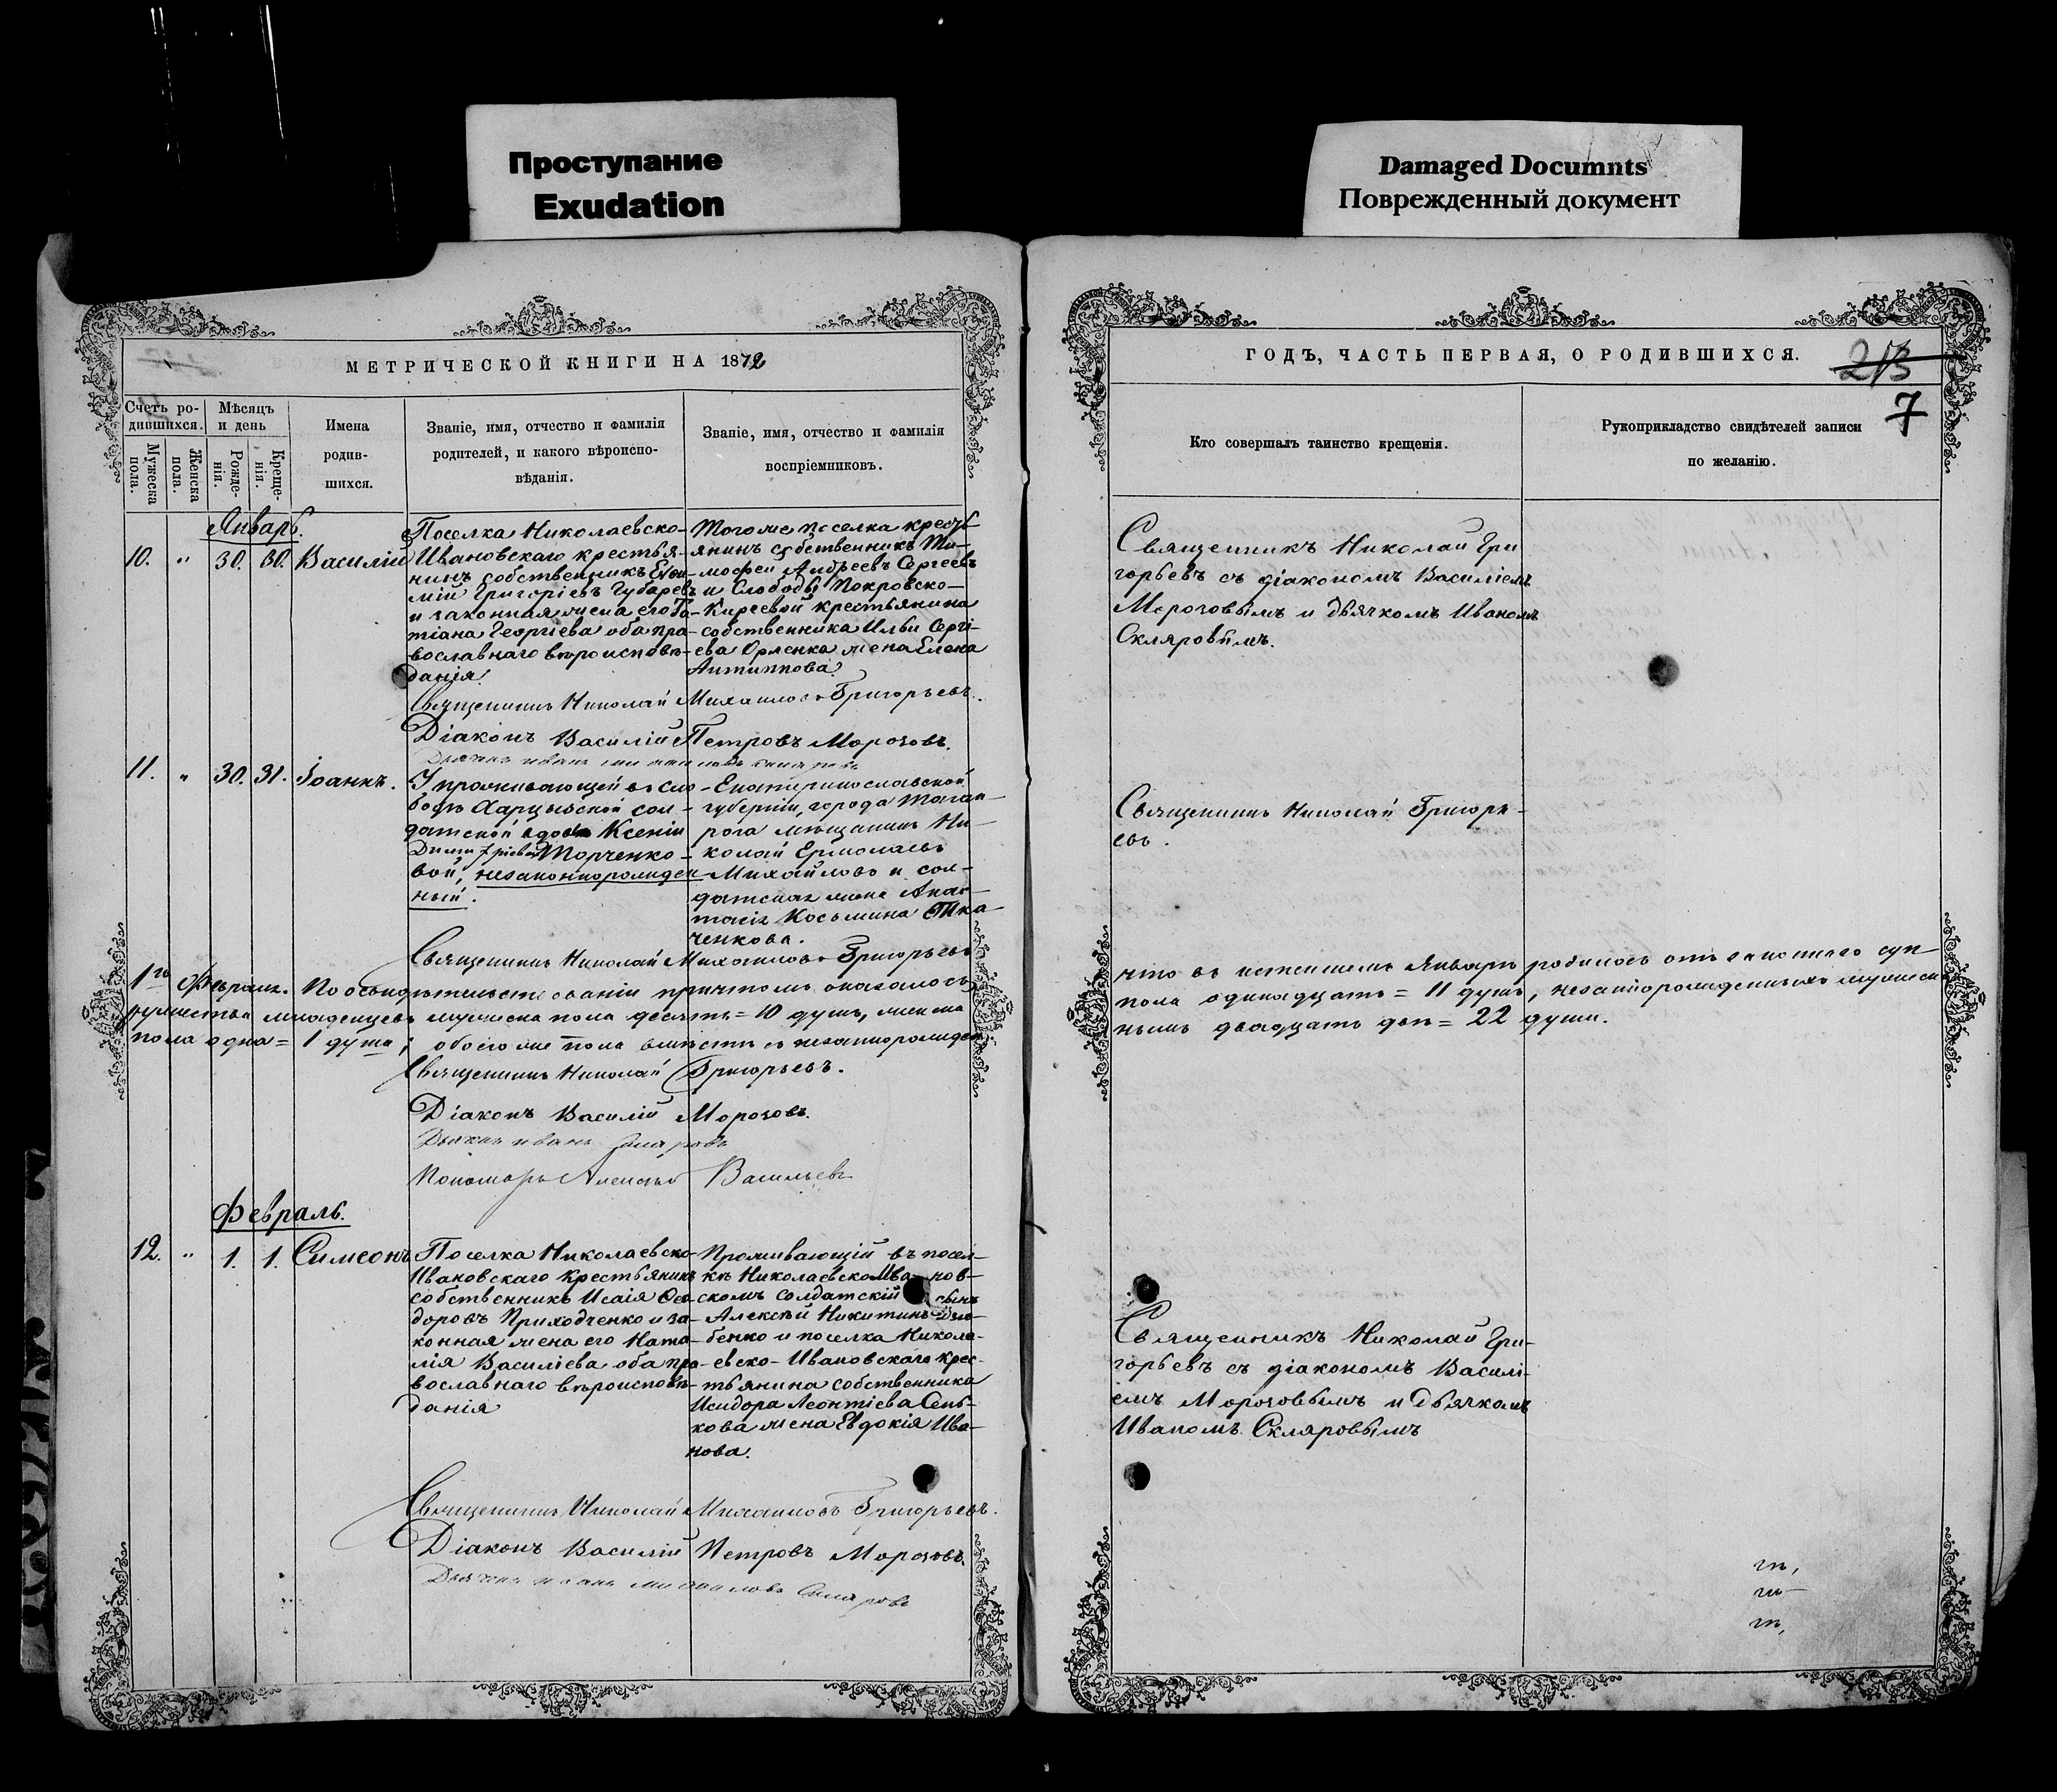 Проступание
Exudation
Damaged Documnts
Поврежденный документ
МЕТРИЧЕСКОЙ КНИГИ НА 1872
Счетъ ро-
дившихся.
Мужеска пола.
Женска пола.
Мѣсяцъ
и день
Рожде-
нія.
Креще-
нія.
Имена
родив-
шихся.
Званіе, имя, отчество и фамилія
родителей, и какого вѣроиспо-
вѣданія.
Званіе, имя, отчество и фамилія
воспріемниковъ.
Январь.
10. " 30. 30. Василій
Поселка Николаевско-
Ивановскаго крестья-
нинъ собственникъ
мій Григоріевъ Губаревъ
и законная жена его Та-
тіана Георгіева оба пра-
вославнаго вѣроисповѣ-
данія.
Тогоже поселка кресть
янинъ собственникъ Ти-
мофей Андреевъ Сергеевъ
и Слободы Покровско-
Киреевой крестьянина
собственника Ильи Сергі-
ева Орленка жена Елена
Антиппова.
Священникъ Николай Михаиловъ Григорьевъ.
Діаконъ Василій Петровъ Морозовъ.
Дьячекъ Иванъ Михаиловъ Скляровъ
11. " 30. 31. Іоаннъ.
У проживающей въ сло-
бодѣ Харцызской сол-
датской вдовы Ксеніи
Димитріевой Торченко-
вой, незаконнорожден
ный.
Екатеринославской
губерніи, города Таган-
рога мѣщанинъ Ни-
колай Ермолаевъ
Михайловъ и сол-
датская жена Анас-
тасія Косьмина Тка-
ченкова.
Священникъ Николай Михаиловъ Григорьевъ
1го Февраля. По освидѣтельствованіи причтомъ оказалось,
ружества младенцевъ мужеска пола десять = 10 душъ, женска
пола одна = 1 душа; обоего же пола вмѣсте съ незаконнорожден
Священникъ Николай Григорьевъ.
Діаконъ Василій Морозовъ.
Дьячекъ Иванъ Скляровъ
Пономарь Алексѣй Васильевъ
Февраль.
12. " 1. 1. Симеонъ
Поселка Николаевско-
Ивановскаго крестьянинъ
собственникъ Исаія Ѳео-
доровъ Приходченко и за-
конная жена его Ната-
лія Василіева оба пра-
вославнаго вѣроисповѣ-
данія
Проживающій въ посел-
кѣ Николаевско Иванов-
скомъ солдатскій сынъ
Алексѣй Никитинъ
бенко и поселка Никола-
евско-Ивановскаго крес-
тьянина собственника
Исидора Леонтіева Сень-
кова жена Евдокія Ива-
нова.
Священникъ Николай Михаиловъ Григорьевъ.
Діаконъ Василій Петровъ Морозовъ.
Дьячекъ Иванъ Михаиловъ Скляровъ
ГОДЪ, ЧАСТЬ ПЕРВАЯ, О РОДИВШИХСЯ.
7
Кто совершалъ таинство крещенія.
Рукоприкладство свидѣтелей записи
по желанію.
Священникъ Николай Гри
горьевъ съ діакономъ Василіемъ
Морозовымъ и дьячкомъ Иваномъ
Скляровымъ.
Священникъ Николай Григорь-
евъ.
что въ истекшемъ Январѣ родилось отъ законнаго суп-
пола одинадцать = 11 душъ, незаконнорожденныхъ мужеска
нымъ двадцать двѣ = 22 души.
Священникъ Николай Гри-
горьевъ съ діакономъ Василі-
емъ Морозовымъ и дьячкомъ
Иваномъ Скляровымъ